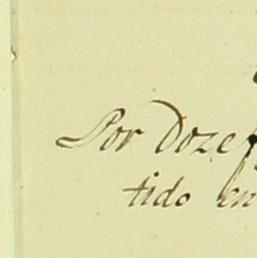 Por Doze
tido en